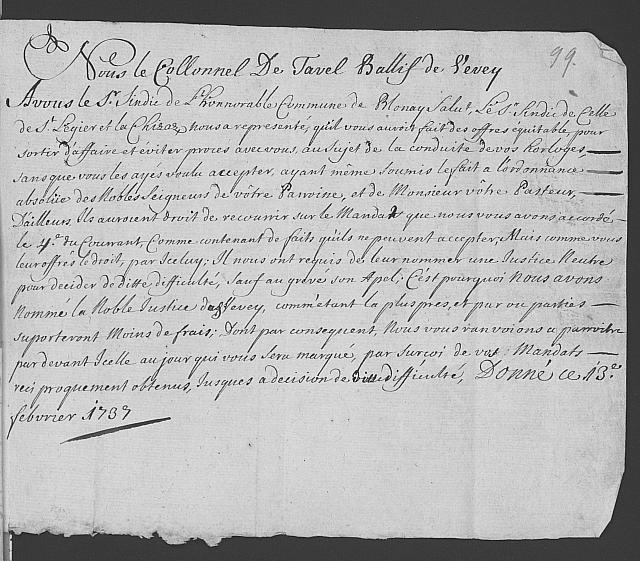 99.
Nous le Collonnel De Tavel Ballif de Vevey
A vous le Sr. Sindic de L'honnorable Commune de Blonay Salut, Le Sr. Sindic de Celle
de St. Legier et la Chiesaz, nous a representé, qu'il vous auroit fait des offres equitable, pour
sortir d'affaire et éviter proces avec vous, au Sujet de la conduite de vos horloges,
sans que vous les ayés voulu accepter, ayant même soumis le fait à l'ordonnance
absolüe des Nobles Seigneurs de vôtre Parroise, et de Monsieur vôtre Pasteur,
D'ailleurs, Ils auroient droit de recourrir sur le Mandat que nous vous avons accordé
le 4e. du Courrant, Comme contenant de faits qu'ils ne peuvent accepter; Mais comme vous
leur offres le droit, par Iceluy; Il nous ont requis de leur nommer une Justice Neutre
pour decider de ditte difficulté, sauf au greve son Apel; C'est pourquoi nous avons
Nommé la Noble Justice de Vevey, comm'étant la plus pres, et par ou parties
suporteront Moins de frais; Dont par consequent, Nous vous ranvoions a parroitre
par devant Icelle au jour qui vous sera marqué, par surçoi de vos: Mandats
reciproquement obtenus, Jusques a decision de ditte difficulté, Donné ce 13e.
febvrier 1737